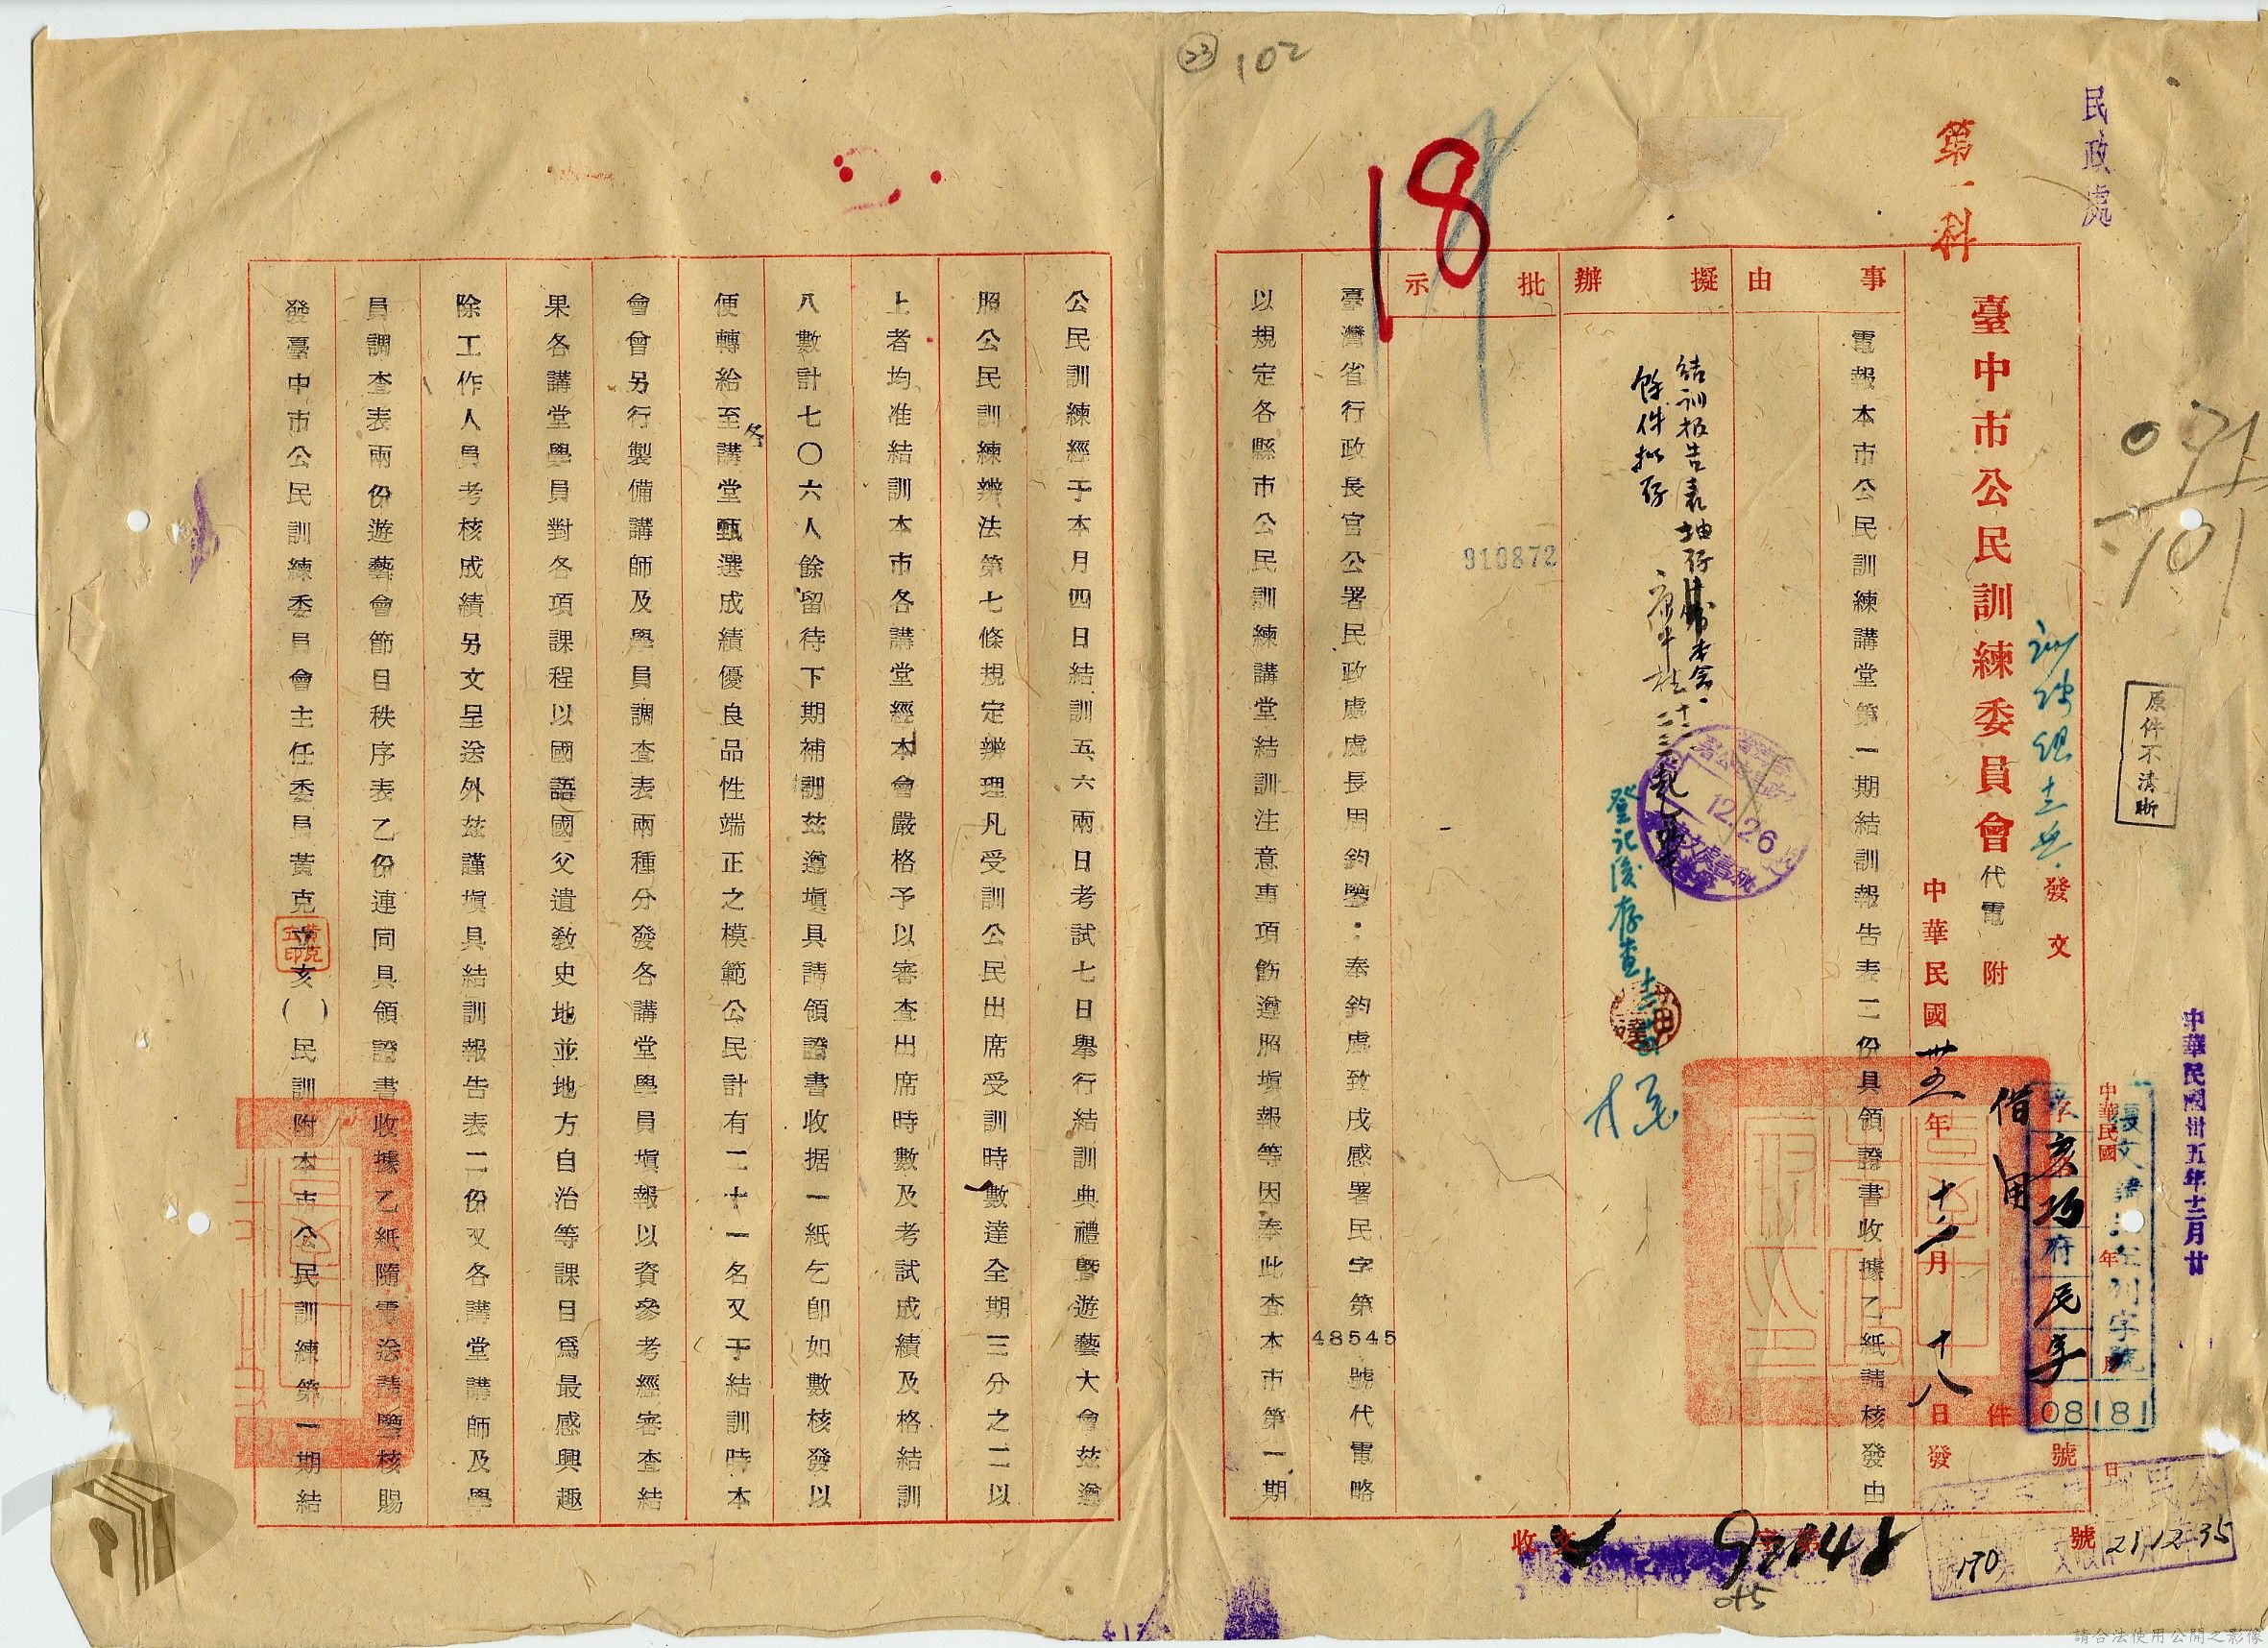 23 102
民政處
第一科
18
071
101
原件不清晰
中華民國卅五年十二月廿
臺中市公民訓練委員會 代電
附 件
發文 號
亥 巧 府 民 字
08181
借用
中華民國卅五年十二月十八日發
事由
電報本市公民訓練講堂第一期結訓報告表二份具領證書收據乙紙請核發由
擬辦
結訓报告表抽存
餘件擬存
12.26
登記後存查
批示
910872
臺灣省行政長官公署民政處處長周鈞鑒：奉鈞處致戌感署民字第48545號代電略
以規定各縣市公民訓練講堂結訓注意事項飭遵照塡報等因奉此查本市第一期
公民訓練經于本月四日結訓五六兩日考試七日舉行結訓典禮曁遊藝大會茲遵
照公民訓練辦法第七條規定辦理凡受訓公民出席受訓時數達全期三分之二以
上者均准結訓本市各講堂經本會嚴格予以審查出席時數及考試成績及格結訓
八數計七〇六人餘留待下期補訓茲遵塡具請領證書收据一紙乞卽如數核發以
便轉給至各講堂甄選成績優良品性端正之模範公民計有二十一名又于結訓時本
會曾另行製備講師及學員調查表兩種分發各講堂學員塡報以資參考經審查結
果各講堂學員對各項課程以國語國父遺敎史地並地方自治等課目爲最感興趣
除工作人員考核成績另文呈送外茲謹塡具結訓報告表二份又各講堂講師及學
員調查表兩份遊藝會節目秩序表乙份連同具領證書收據乙紙隨電送請鑒核賜
發臺中市公民訓練委員會主任委員黃克立亥（ ）民訓附本市公民訓練第一期結
黃克立印
收文 字第 號
170
21.12.35
請合法使用公開之影像